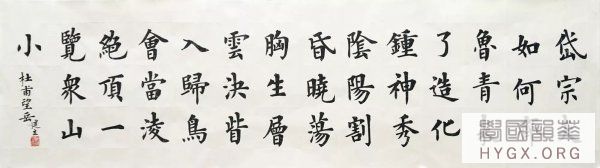 岱宗
如何
魯青
了造化
鍾神秀
陰陽割
昏曉蕩
胸生層
雲決眥
入歸鳥
會當淩
絕頂一
覽眾山
小
杜甫望岳
華韻國學
HYGX.ORG